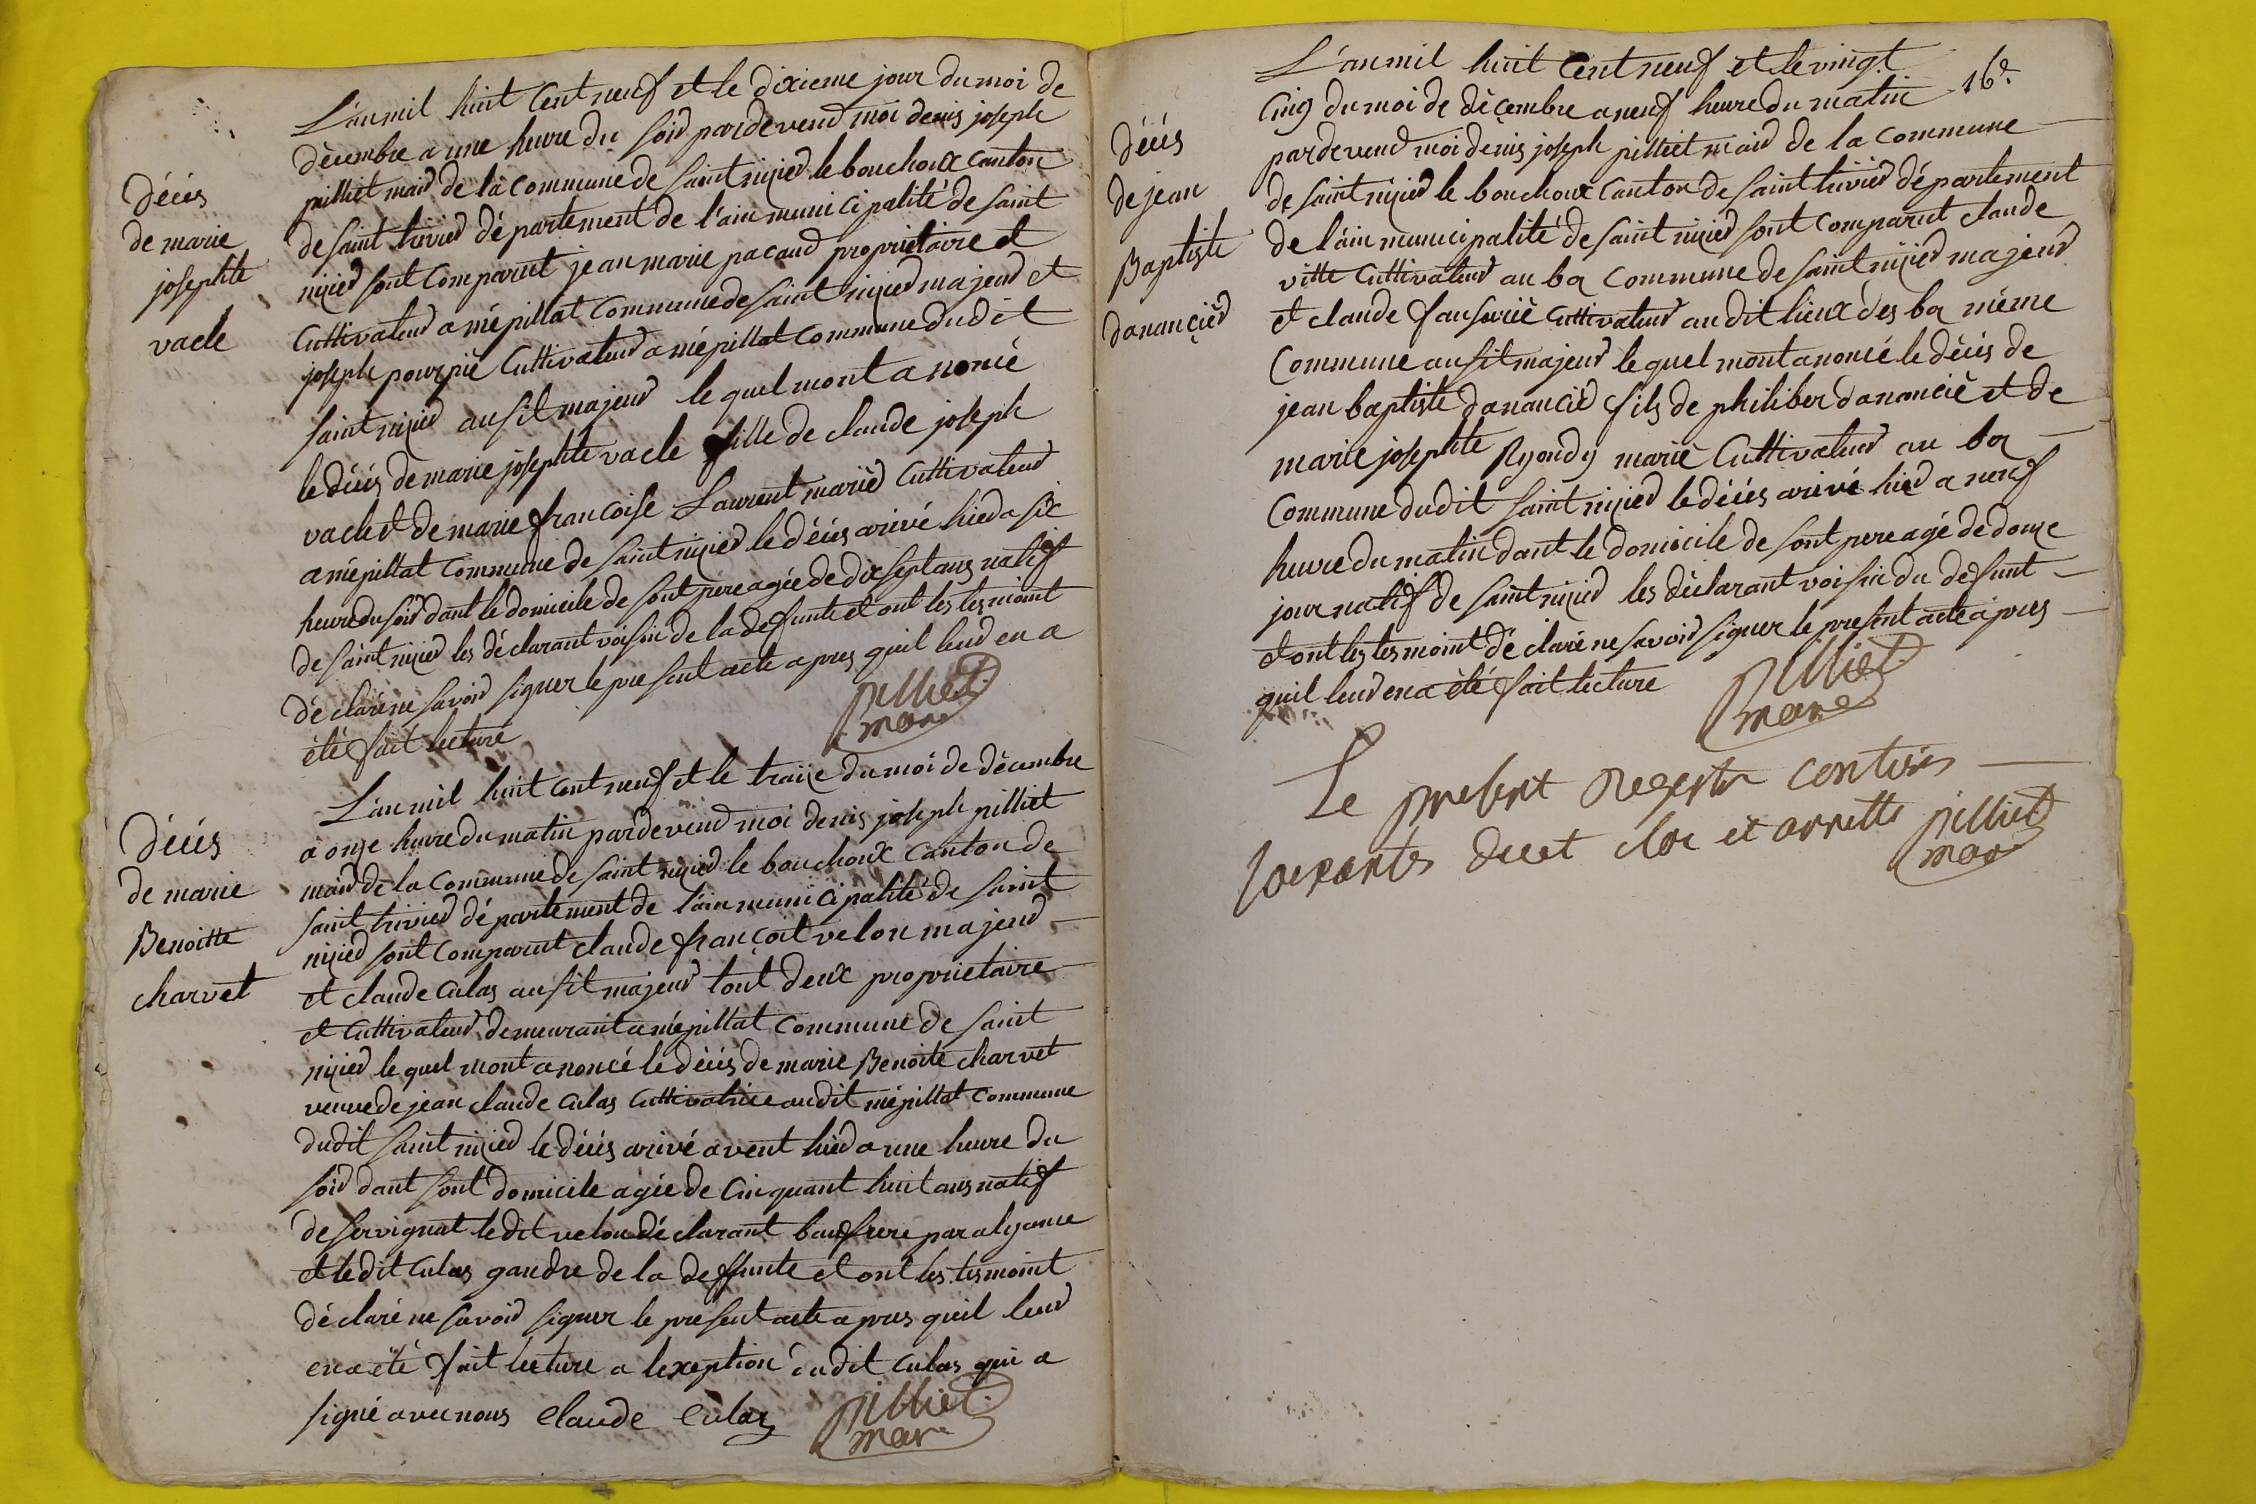 décés
de marie
josephte
vacle
L'an mil huit cent neuf et le dixieme jour du moi de
décembre a une heure du soir pardevend moi denis joseph
pilliet maire de la commune de saint nizier le bouchoux canton
de saint trivier département de l'ain municipalité de saint
nizier sont comparut jean marie pacaud proprietaire et
cultivateur a mépillat commune de saint nizier majeur et
joseph pourpié cultivateur a mépillat commune dudit
saint nizier ausit majeur le quel mont anoncé
le décés de marie josephte vacle fille de claude joseph
vacle et de marie francoise Laurent mariér cultivateur
a mépillat commune de saint nizier le décés arivé hier a six
heure du soir dant le domicile de sont pere agée de dix sept ans natif
de saint nizier les déclarant voisin de la defunte et ont les tesmoint
déclaré ne savoir signer le present acte apres quil leur en a
été fait lecture
pilliet
mare
décés
de marie
Benoitte
charvet
L'an mil huit cent neuf et le traize du moi de décembre
a onze heure du matin pardevend moi denis joseph pilliet
maire de la commune de saint nizier le bouchoux canton de
saint trivier département de l'ain municipalité de saint
nizier sont comparut claude françoit velon majeur
et claude culas ausit majeur tout deux proprietaire
et cultivateur demeurant a mépillat commune de saint
nizier le quel mont anoncé le décés de marie Benoite charvet
veuve de jean claude culas cultivatrice audit mépillat commune
dudit saint nizier le décés arivé avent hier a une heure du
soir dant sont domicile agée de cinquant huit ans natif
de servignat ledit velon déclarant baufrere par alyance
et ledit culas gandre de la deffunte et ont les tesmoint
déclaré ne savoir signer le présent acte apres quil leur
en a été fait lecture a lexeption dudit culas qui a
signé avec nous claude Culas
pilliet
mare
16e.
décés
de jean
Baptiste
dananciér
L'an mil huit cent neuf et le vingt
cinq du moi de décembre a neuf heure du matin
pardevend moi denis joseph pilliet maire de la commune
de saint nizier le bouchoux canton de saint trivier département
de l'ain municipalité de saint nizier sont comparut claude
vitte cultivateur au ba commune de saint nizier majeur
et claude cultivateur audit lieux des ba méme
commune ausit majeur le quel mont anoncé le décés de
jean baptiste dananciér fils de philiber dananciè et de
marie josephte Ryondy marié cultivateur au ba
commune dudit saint nizier le décés arivé hier a neuf
heure du matin dant le domicile de sont pere agé de douze
jour natif de saint nizier les déclarant voisin du defunt
et ont les tesmoint déclaré ne savoir signer le present acte apres
quil leur en a été fait lecture
pilliet
mare
Le present Regestre contenis
soixante decet clos et arrette
pilliet
mare